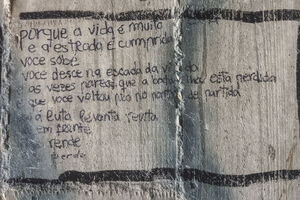 porque a vida é muito
e a estrada é cumprida
você sobe
você desce na escada da vida
as vezes parece que a batalha está perdida
que você voltou não no de partida
a luta levanta revita
em frente
rende